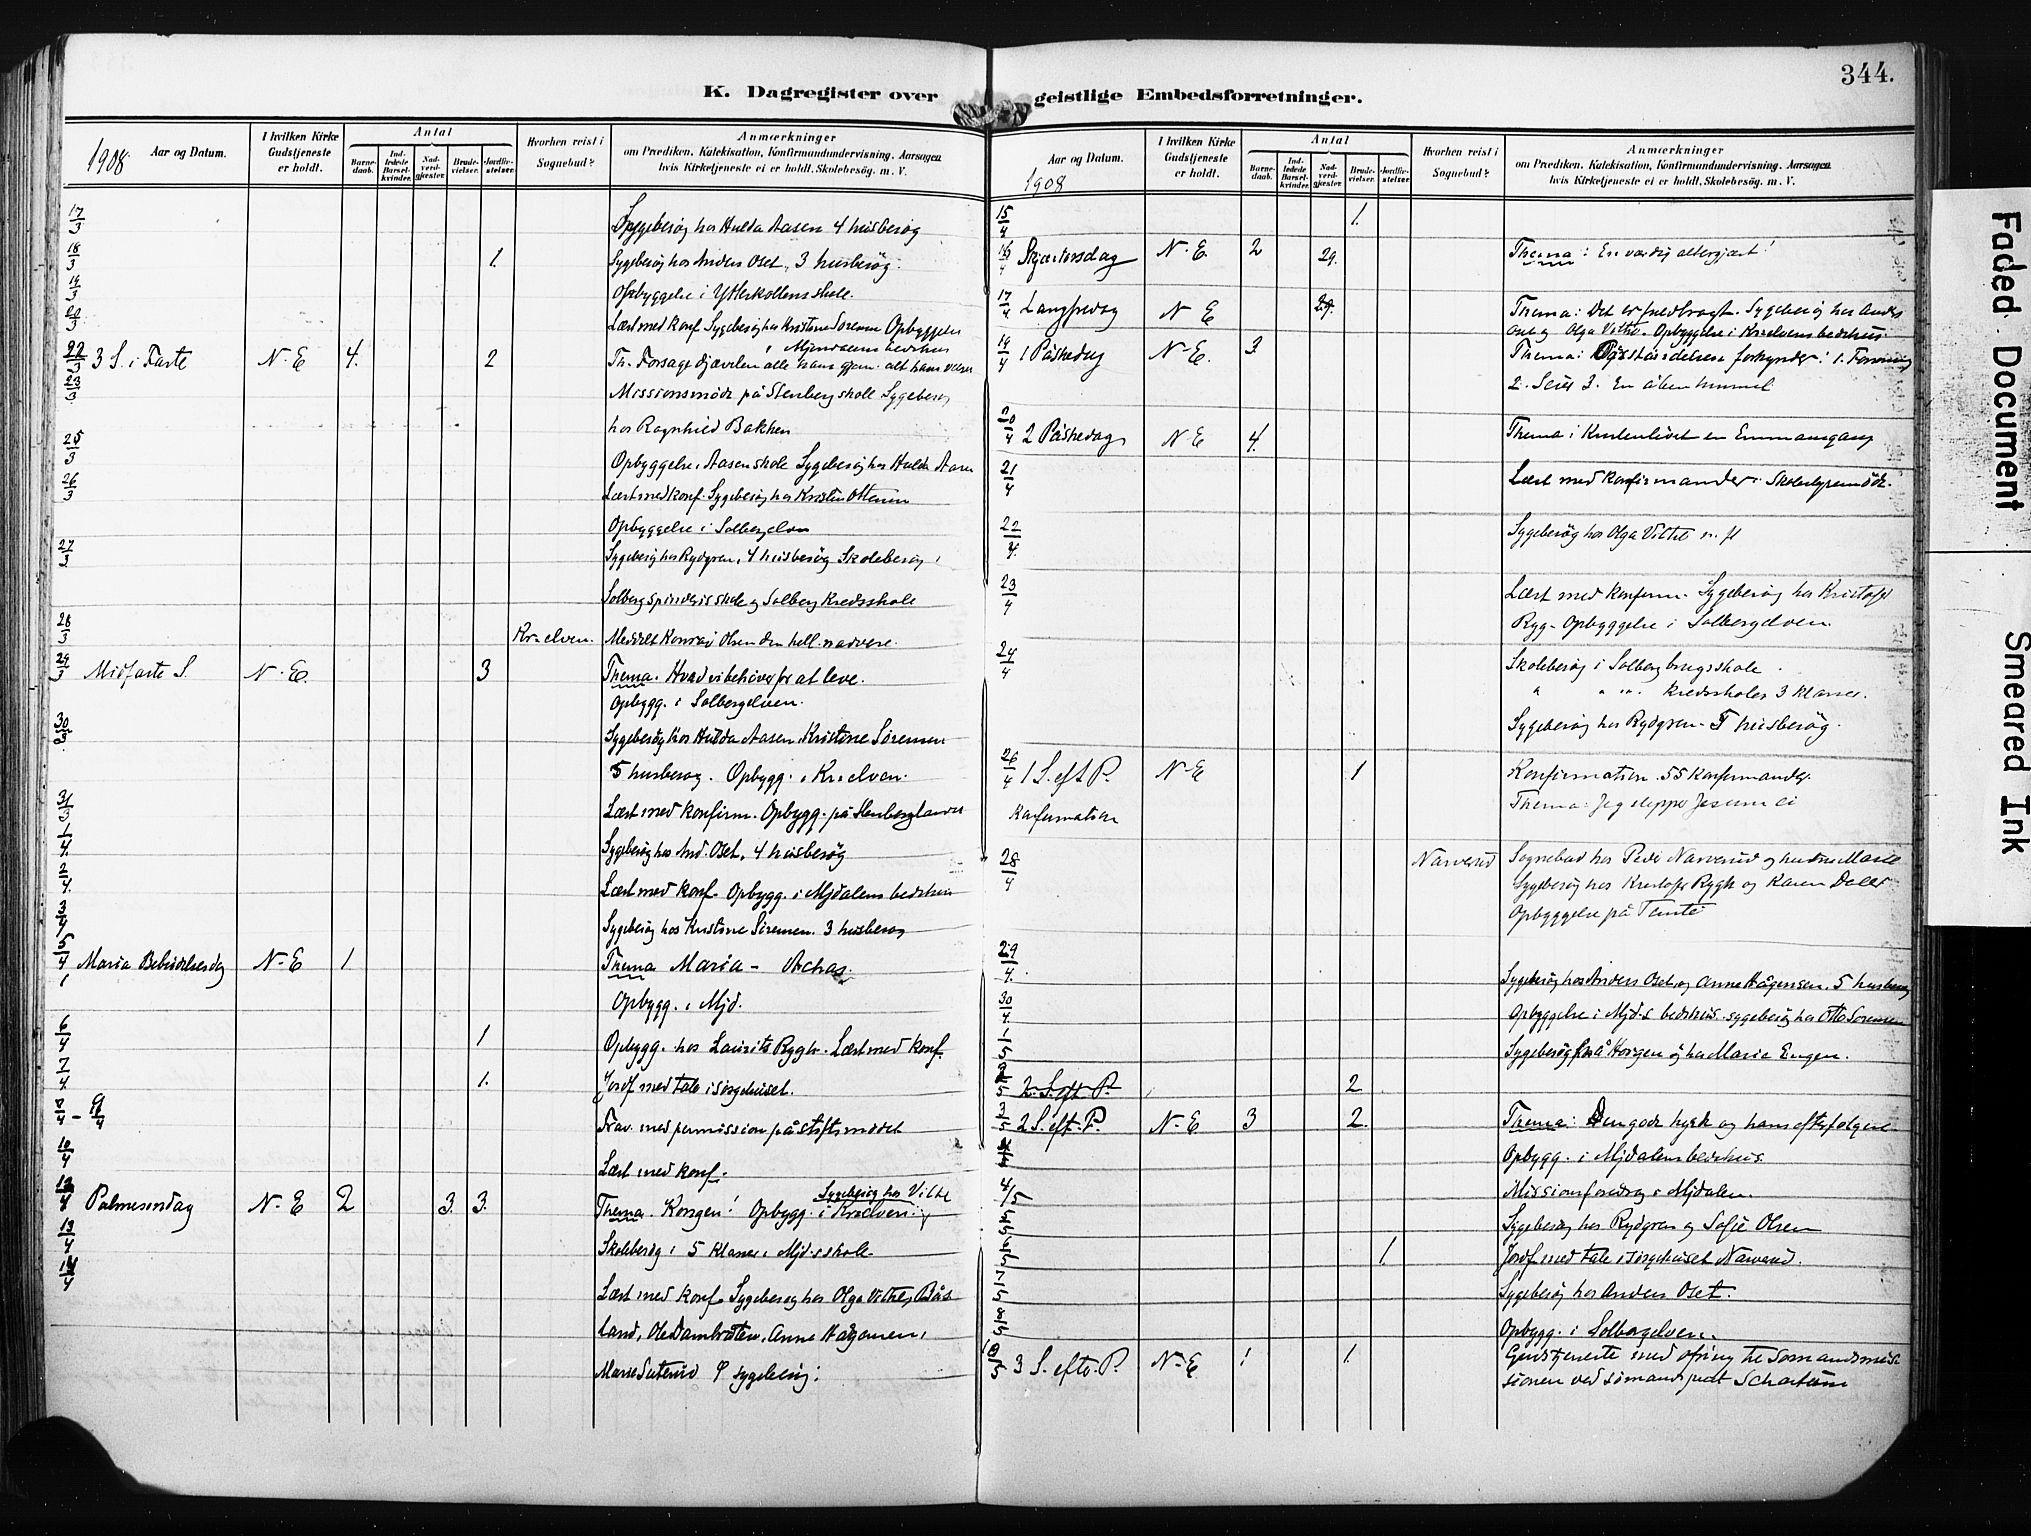 344.
K. Dagregister over geistlige Embedsforretninger.
Aar og Datum.
1908.
I hvilken Kirke Gudstjeneste er holdt.
Antal
Barnedaab.
Indledede Barselkvinder.
Nadverdgjæster.
Brudevielser.
Jordfæstelser.
Hvorhen reist i Sognebud?
Anmærkninger
om Prædiken, Katekisation, Konfirmandundervisning, Aarsagen
hvis Kirketjeneste ei er holdt, Skolebesøg, m. V.
17/3 Sygebesøg hos Hulda Aasen 4 husbesøg
18/3 1. Sygebesøg hos Anders Oset, 3 husbesøg.
19/3 Opbyggelse i Ytterkollens skole.
20/3 Læst med konf Sygebesøg hos Kristine Sørensen Opbyggelse
i Mjøndalens bedehus
22/3 3 S. i Faste N-E 4. 2 Th. Forsage djævelen alle hans gjern. alt hans væsen
23/3 Missionsmøde på Stenberg skole Sygebesøg
hos Ragnhild Bakken
25/3 Opbyggelse i Aasen skole Sygebesøg hos Hulda Aasen
26/3 Læst med konf. Sygebesøg hos Kristin Ottesen
Opbyggelse i Solbergelven
27/3 Sygebesøg hos Rydgren, 4 husbesøg Skolebesøg i
Solberg spinderis skole og Solberg Kredsskole
28/3 Kr-elven. Meddelt Konrad Olsen den hell. nadvere.
29/3 Midfaste S. N-E. 3 Thema. Hvad vi behøver for at leve.
Opbygg. i Solbergelven.
30/3 Sygebesøg hos Hulda Aasen, Kristine Sørensen
5 husbesøg. Opbygg. i Kr-elven.
31/3 Læst med konfirm. Opbygg. på Stenberglandet
1/4. Sygebesøg hos And. Oset, 4 husbesøg
2/4. Læst med konf. Opbygg. i Mjdalens bedehus
3/4 Sygebesøg hos Kristine Sørensen. 3 husbesøg
5/4 Maria Bebudelsesdag N-E 1 Thema Maria - Achas.
Opbygg. i Mjd.
6/4 1 Opbygg. hos Laurits Rygh. Læst med konf.
7/4 1. Jordf med tale i sørgehuset.
8/4 - 9/4 Frav. med permission på stiftsmødet
10/4 Læst med konf.
12/4 Palmesøndag N-E 2 3. 3. Thema. Kongen! Opbygg. i Kr-elven. Sygebesøg hos Vilte
13/4 Skolebesøg i 5 klasser i Mjd.s skole
14/4
Læst med konf. Sygebesøg hos Olga Vilthe, Bås
land, Ole Dambråten, Anne Hagensen,
Marie Sæterud 9 sygebesøg.
Aar og Datum.
1908
I hvilken Kirke Gudstjeneste er holdt.
Antal
Barnedaab.
Indledede Barselkvinder.
Nadverdgjæster.
Brudevielser.
Jordfæstelser.
Hvorhen reist i Sognebud?
Anmærkninger
om Prædiken, Katekisation, Konfirmandundervisning, Aarsagen
hvis Kirketjeneste ei er holdt, Skolebesøg, m. V.
15/4 1.
16/4 Skjærtorsdag N-E. 2 29. Thema: En værdig altergjæst!
17/4 Langfredag N E 29. Thema: Det er fuldbragt. Sygebesøg hos Anders
Oset og Olga Vilthe. Opbyggelse i Krelvens bedehus
19/4 1 Påskedag N-E. 3 Thema: Opstandelsen forkynder: 1. Forsoning
2. Seier 3. En åben himmel
20/4 2 Påskedag N E 4. Thema: Kristenlivet en Emmausgang
21/4 Læst med konfirmander. Skolestyremøde.
22/4. Sygebesøg hos Olga Vilthe m. fl
23/4 Læst med konfirm. Sygebesøg hos Kristofer
Ryg. Opbyggelse i Solbergelven.
24/4 Skolebesøg i Solberg brugsskole.
" " " kredsskoles 3 klasser.
Sygebesøg hos Rydgren - 5 husbesøg.
26/4 1 S. eft P. N-E 1 Konfirmation. 55 konfirmander.
Konfirmation Thema: Jeg slipper Jesum ei
28/4 Narverud Sognebud hos Peder Narverud og hustru Marie
Sygebesøg hos Kristofer Rygh og Karen
Opbyggelse på Temte
29/4. Sygebesøg hos Anders Oset og Anne Hågensen. 5 husbesøg
30/4 Opbyggelse i Mjd-s bedehus. sygebesøg hos Otto Sørensen
1/5 Sygebesøg på Horgen og hos Maria Engen.
2/5 2. S. eft. P. 2
3/5 2 S. eft. P. N-E 3 2. Thema: Den gode hyrde og hans efterfølgere
Opbygg. i Mjdalens bedehus.
4/5 Missionsforedrag i Mjdalen.
5/5 Sygebesøg hos Rydgren og Sofie Olsen
6/5 1 Jordf. med tale i sørgehuset Narverud.
7/5 Sygebesøg hos Anders Oset.
8/5 Opbygg. i Solbergelven.
10/5 3 S. efter P. N-E 1 1. Gudstjeneste med ofring til Sømandsmis
sionen ved sømandspræst Schartum
Faded Document
Smeared Ink